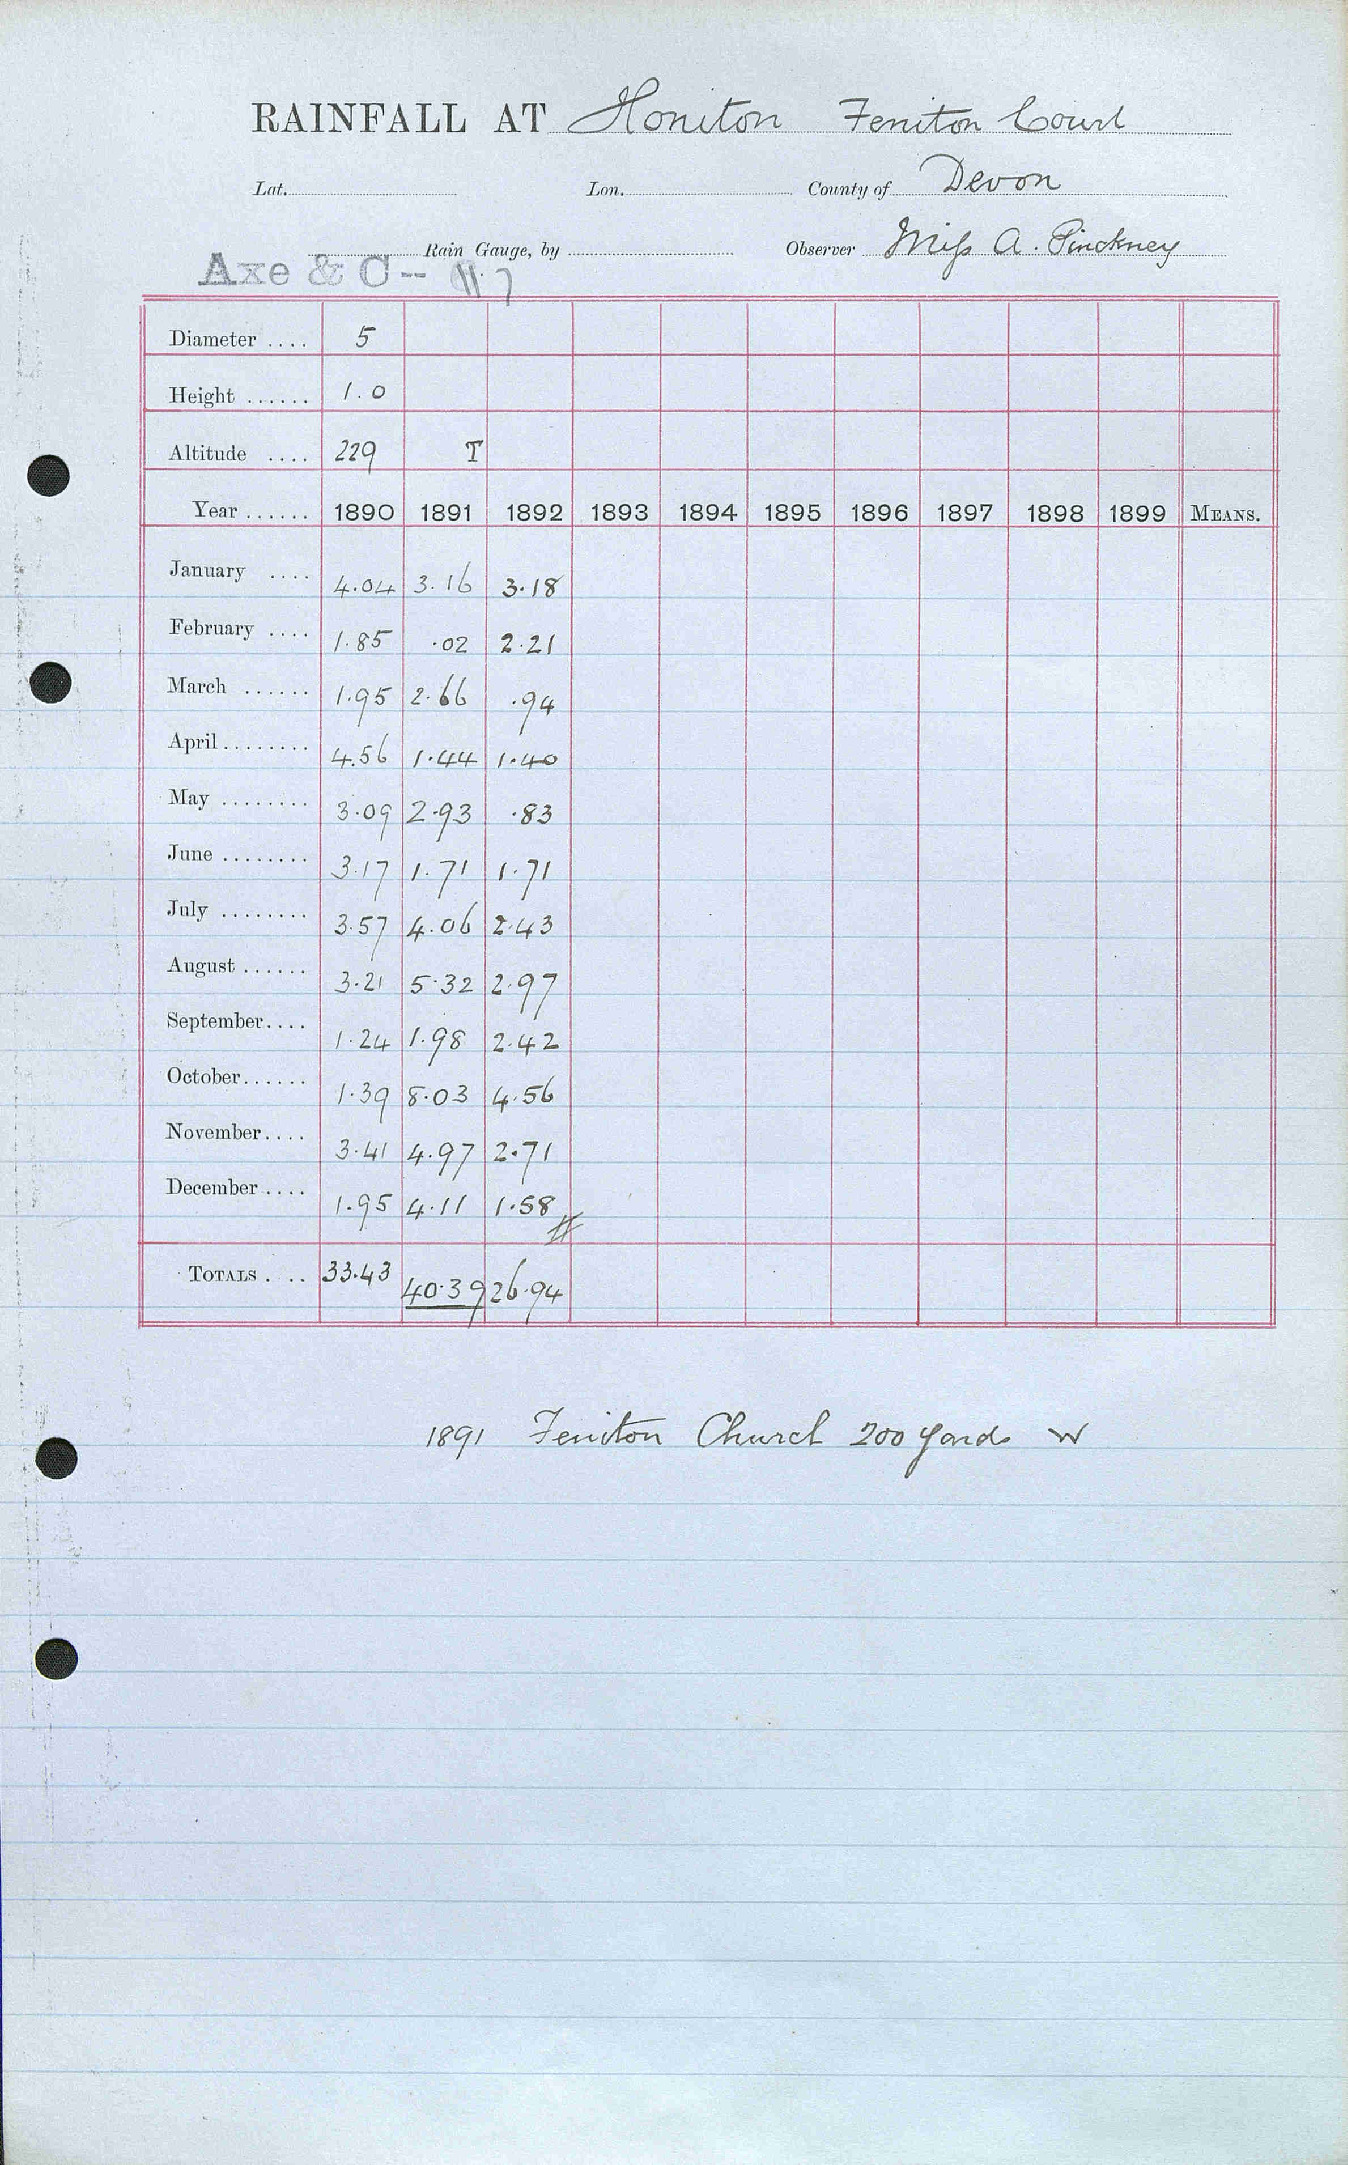 RAINFALL AT Honiton Feniton Court
Lat. Lon. County of Devon
Rain Gauge, by Observer Miss A. Pinckney
Axe & C--
Diameter .... 5
Height ...... 1.0
Altitude .... 229 T
Year ...... 1890 1891 1892 1893 1894 1895 1896 1897 1898 1899 MEANS.
January .... 4.04 3.16 3.18
February .... 1.85 .02 2.21
March ...... 1.95 2.66 .94
April ........ 4.56 1.44 1.40
May ........ 3.09 2.93 .83
June ........ 3.17 1.71 1.71
July ........ 3.57 4.06 2.43
August ...... 3.21 5.32 2.97
September .... 1.24 1.98 2.42
October ...... 1.39 8.03 4.56
November .... 3.41 4.97 2.71
December .... 1.95 4.11 1.58
TOTALS . .. 33.43 40.39 26.94
1891 Feniton Church 200 yards W